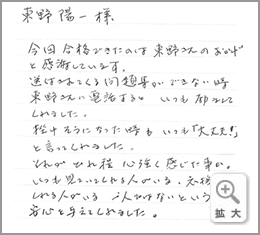 東野陽一様
今回合格できたのは東野さんのおかげ
と感謝しています。
送られてくる問題集ができない時
東野さんに電話すると いつも
くれました。
挫けそうになった時も いつも「大丈夫!」
と言ってくれました。
それが どれ程 心強く感じた事か。
いつも見ていてくれる人がいる、応援
くれる人がいる 一人ではないという
安心を与えてくれました。
拡大